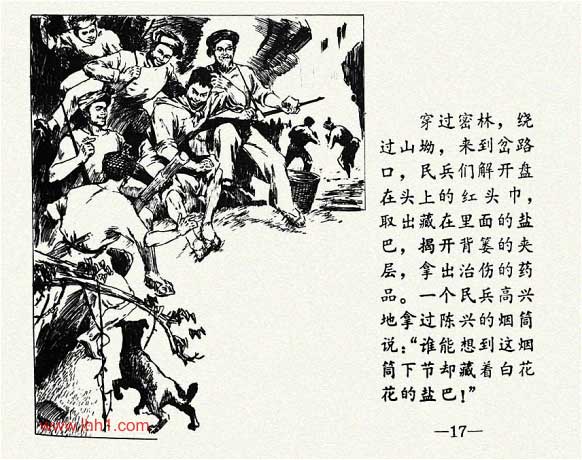 穿过密林，绕
过山坳，来到岔路
口，民兵们解开盘
在头上的红头巾，
取出藏在里面的盐
巴，揭开背篓的夹
层，拿出治伤的药
品。一个民兵高兴
地拿过陈兴的烟筒
说：“谁能想到这烟
筒下节却藏着白花
花的盐巴！”
—17—
www.lhh1.com